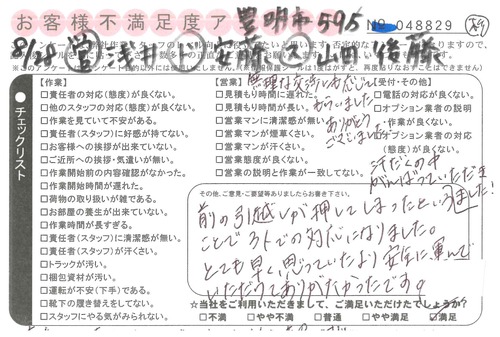 お客様不満足度ア 豊明市595 No 048829
8/24 浅井 安藤 山田 後藤
チェックリスト
【作業】
□責任者の対応(態度)が良くない。
□他のスタッフの対応(態度)が良くない。
□作業を見ていて不安がある。
□責任者(スタッフ)に好感が持てない。
□お客様への挨拶が出来ていない。
□ご近所への挨拶・気遣いが無い。
□作業開始前の内容確認がなかった。
□作業開始時間が遅れた。
□荷物の取り扱いが雑である。
□お部屋の養生が出来ていない。
□作業時間が長すぎる。
□責任者(スタッフ)に清潔感が無い。
□責任者(スタッフ)が汗くさい。
□トラックが汚い。
□梱包資材が汚い。
□運転が不安(下手)である。
□靴下の履き替えをしてない。
□スタッフにやる気がみられない。
【営業】
□見積もり時間に遅れた。
□見積もり時間が長い。
□営業マンに清潔感が無い
□営業マンが煙草くさい。
□営業マンが汗くさい。
□営業態度が良くない。
□営業の説明と作業が一致してない。
無理な交渉にも応じて
もらいました
ありがとう
ございました
【受付・その他】
□電話の対応が良くない。
□オプション業者の説明
が良くない。
□オプション業者の対応
が良くない。
汗だくの中
がんばっていただき
ました!
その他、ご意見・ご要望等ありましたらお書き下さい。
前の引越しが押してしまったという
ことで3トでの対応になりました。
とても早く、思っていたより安全に運んで
いただけてありがたかったです。
☆当社をご利用いただきまして、ご満足いただけたでしょうか?
□不満 □やや不満 □普通 □やや満足 □満足